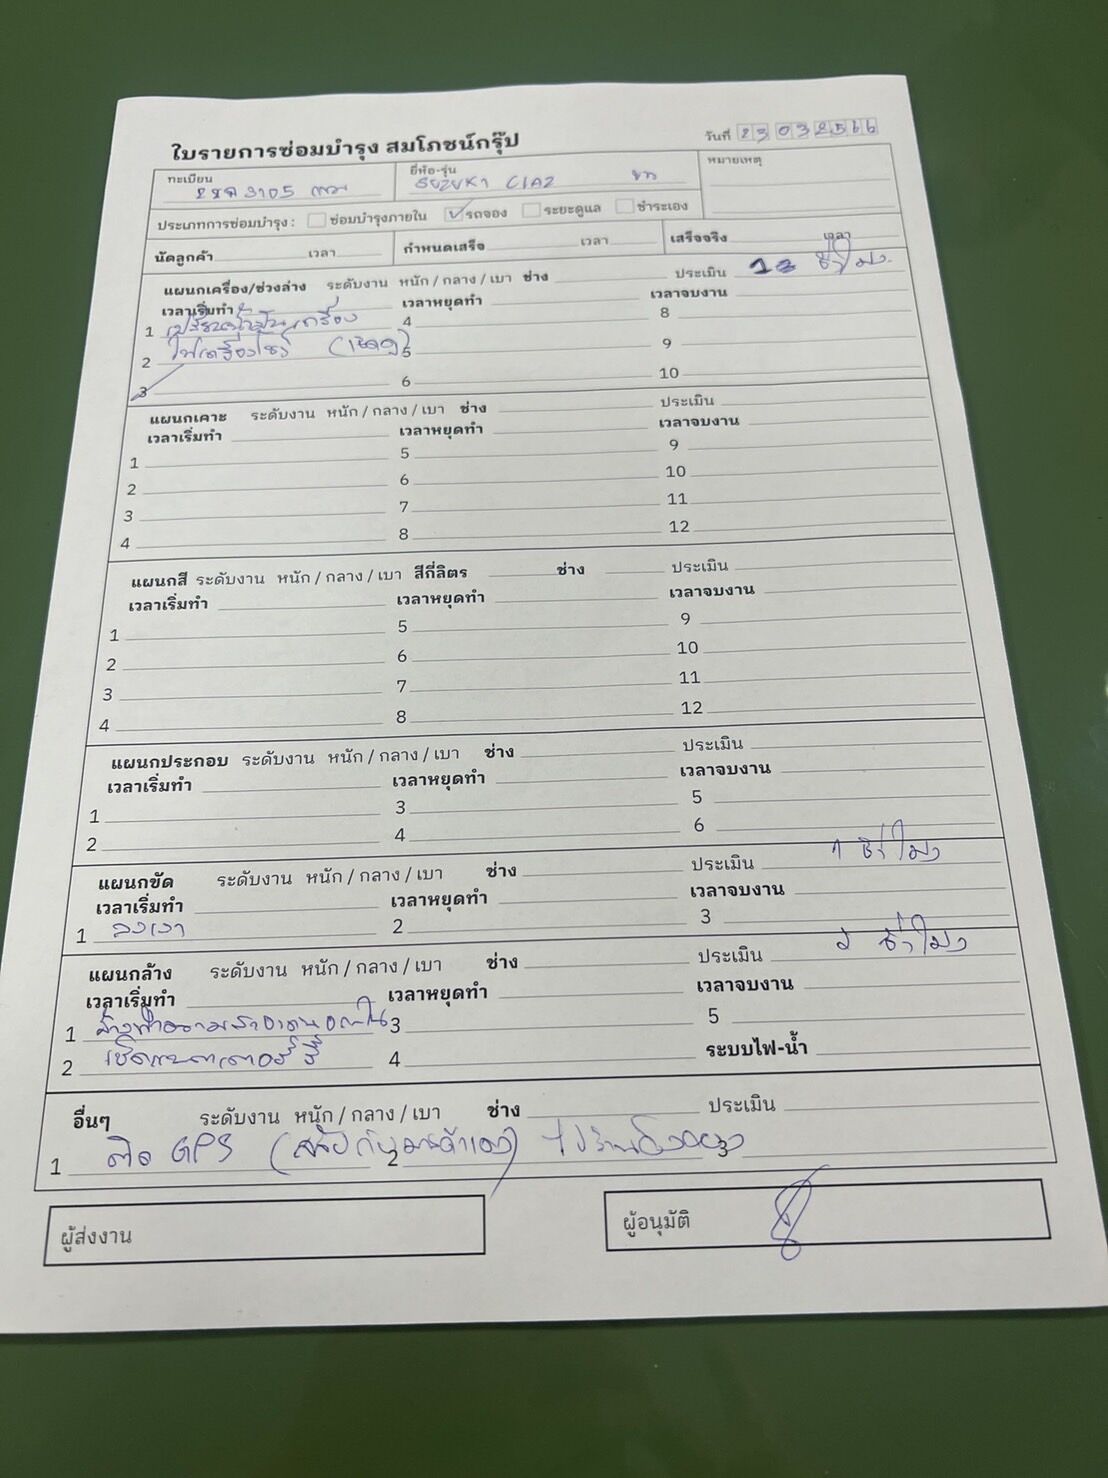 ใบรายการซ่อมบำรุง สมโภชน์กรุ๊ป
วันที่ 23 03 2566
ทะเบียน 3105 ยี่ห้อ-รุ่น SUZUKI CIAZ หมายเหตุ
ประเภทการซ่อมบำรุง : ซ่อมบำรุงภายใน รถจอง ระยะดูแล ชำระเอง
นัดลูกค้า เวลา กำหนดเสร็จ เวลา เสร็จจริง เวลา
แผนกเครื่อง/ช่วงล่าง ระดับงาน หนัก / กลาง / เบา ช่าง ประเมิน ชั่วโมง
เวลาเริ่มทำ เวลาหยุดทำ เวลาจบงาน
1 เปลี่ยนน้ำมันเครื่อง 4 8
2 ไฟเครื่องโชว์ (เช็คดู) 5 9
3 6 10
แผนกเคาะ ระดับงาน หนัก / กลาง / เบา ช่าง ประเมิน
เวลาเริ่มทำ เวลาหยุดทำ เวลาจบงาน
1 5 9
2 6 10
3 7 11
4 8 12
แผนกสี ระดับงาน หนัก / กลาง / เบา สีกี่ลิตร ช่าง ประเมิน
เวลาเริ่มทำ เวลาหยุดทำ เวลาจบงาน
1 5 9
2 6 10
3 7 11
4 8 12
แผนกประกอบ ระดับงาน หนัก / กลาง / เบา ช่าง ประเมิน
เวลาเริ่มทำ เวลาหยุดทำ เวลาจบงาน
1 3 5
2 4 6
แผนกขัด ระดับงาน หนัก / กลาง / เบา ช่าง ประเมิน 1 ชั่วโมง
เวลาเริ่มทำ เวลาหยุดทำ เวลาจบงาน
1 ลงเงา 2 3
แผนกล้าง ระดับงาน หนัก / กลาง / เบา ช่าง ประเมิน 2 ชั่วโมง
เวลาเริ่มทำ เวลาหยุดทำ เวลาจบงาน
1 ล้างทำความสะอาด 3 5
2 เช็คแบตเตอรี่ 4 ระบบไฟ-น้ำ
อื่นๆ ระดับงาน หนัก / กลาง / เบา ช่าง ประเมิน
1 ติด GPS 2 3
ผู้ส่งงาน ผู้อนุมัติ